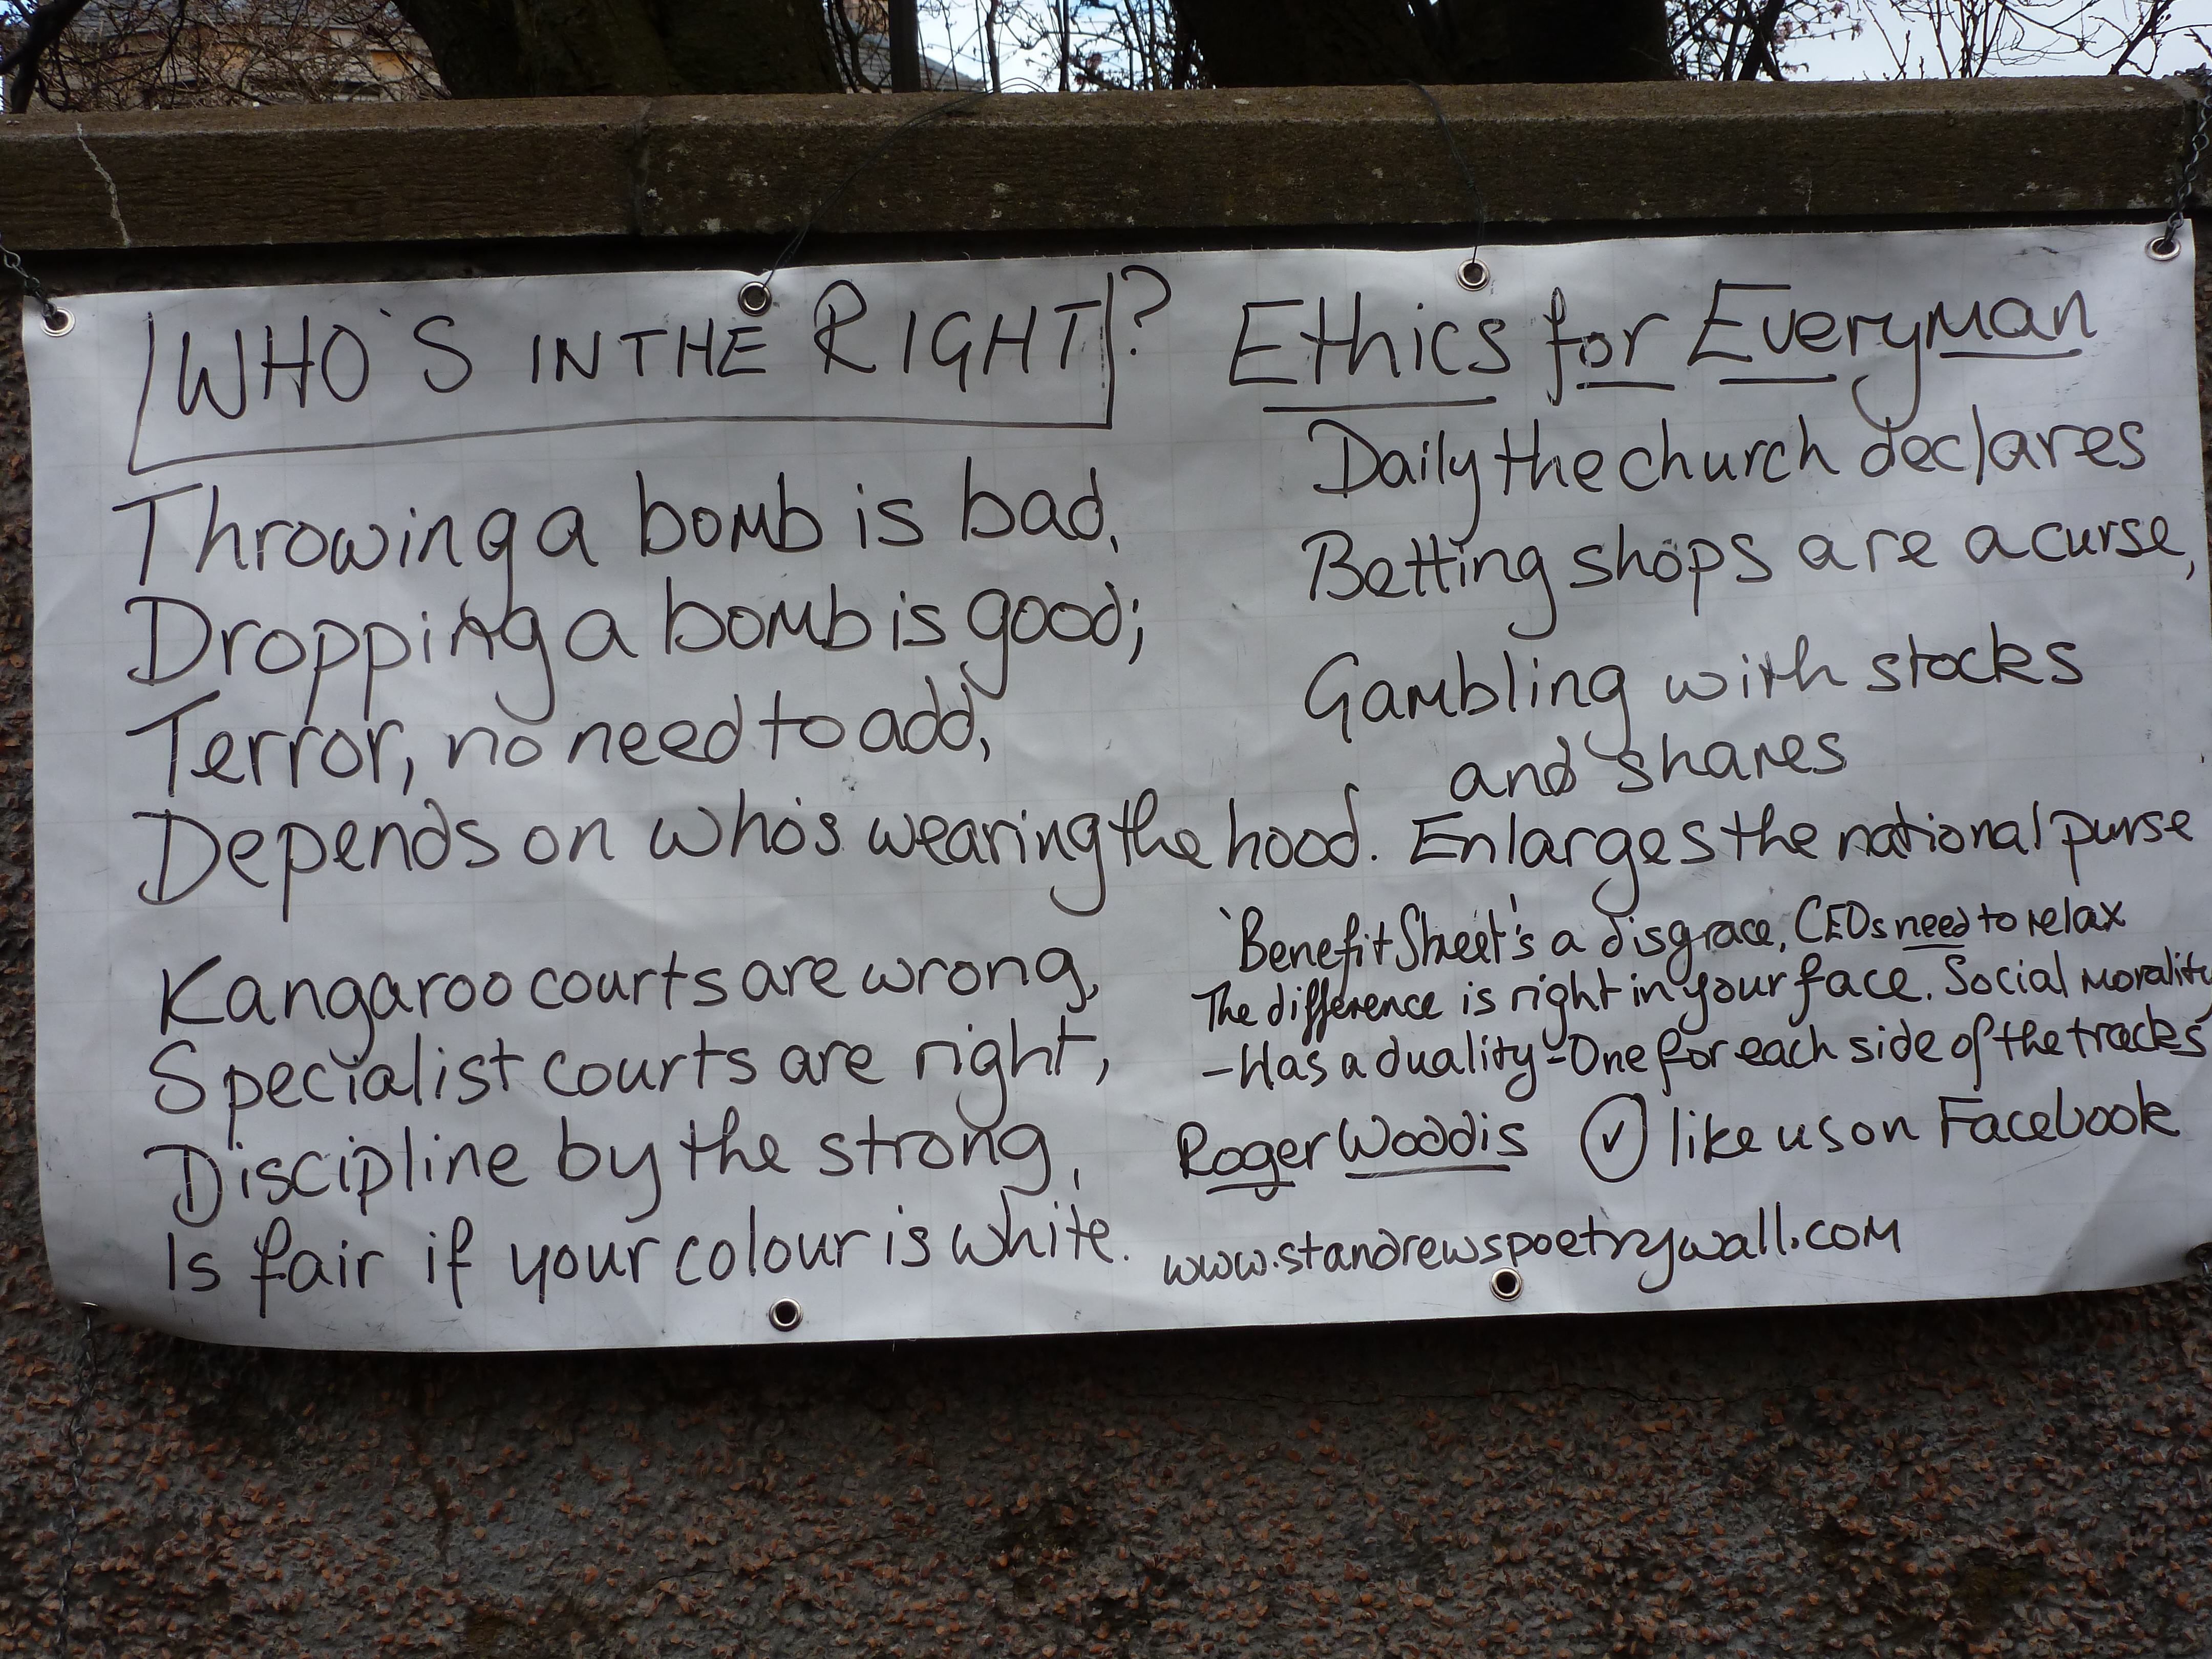 WHO'S IN THE RIGHT?
Ethics for Everyman
Throwing a bomb is bad,
Dropping a bomb is good;
Terror, no need to add,
Depends on who's wearing the hood.
Kangaroo courts are wrong,
Specialist courts are right,
Discipline by the strong,
Is fair if your colour is white.
Daily the church declares
Betting shops are a curse,
Gambling with stocks
and shares
Enlarges the national purse
'Benefit Street's' a disgrace, CEOs need to relax
The difference is right in your face. Social morality
-Has a duality-One for each side of the tracks
Roger Woddis ✓ like us on Facebook
www.standrewspoetrywall.com